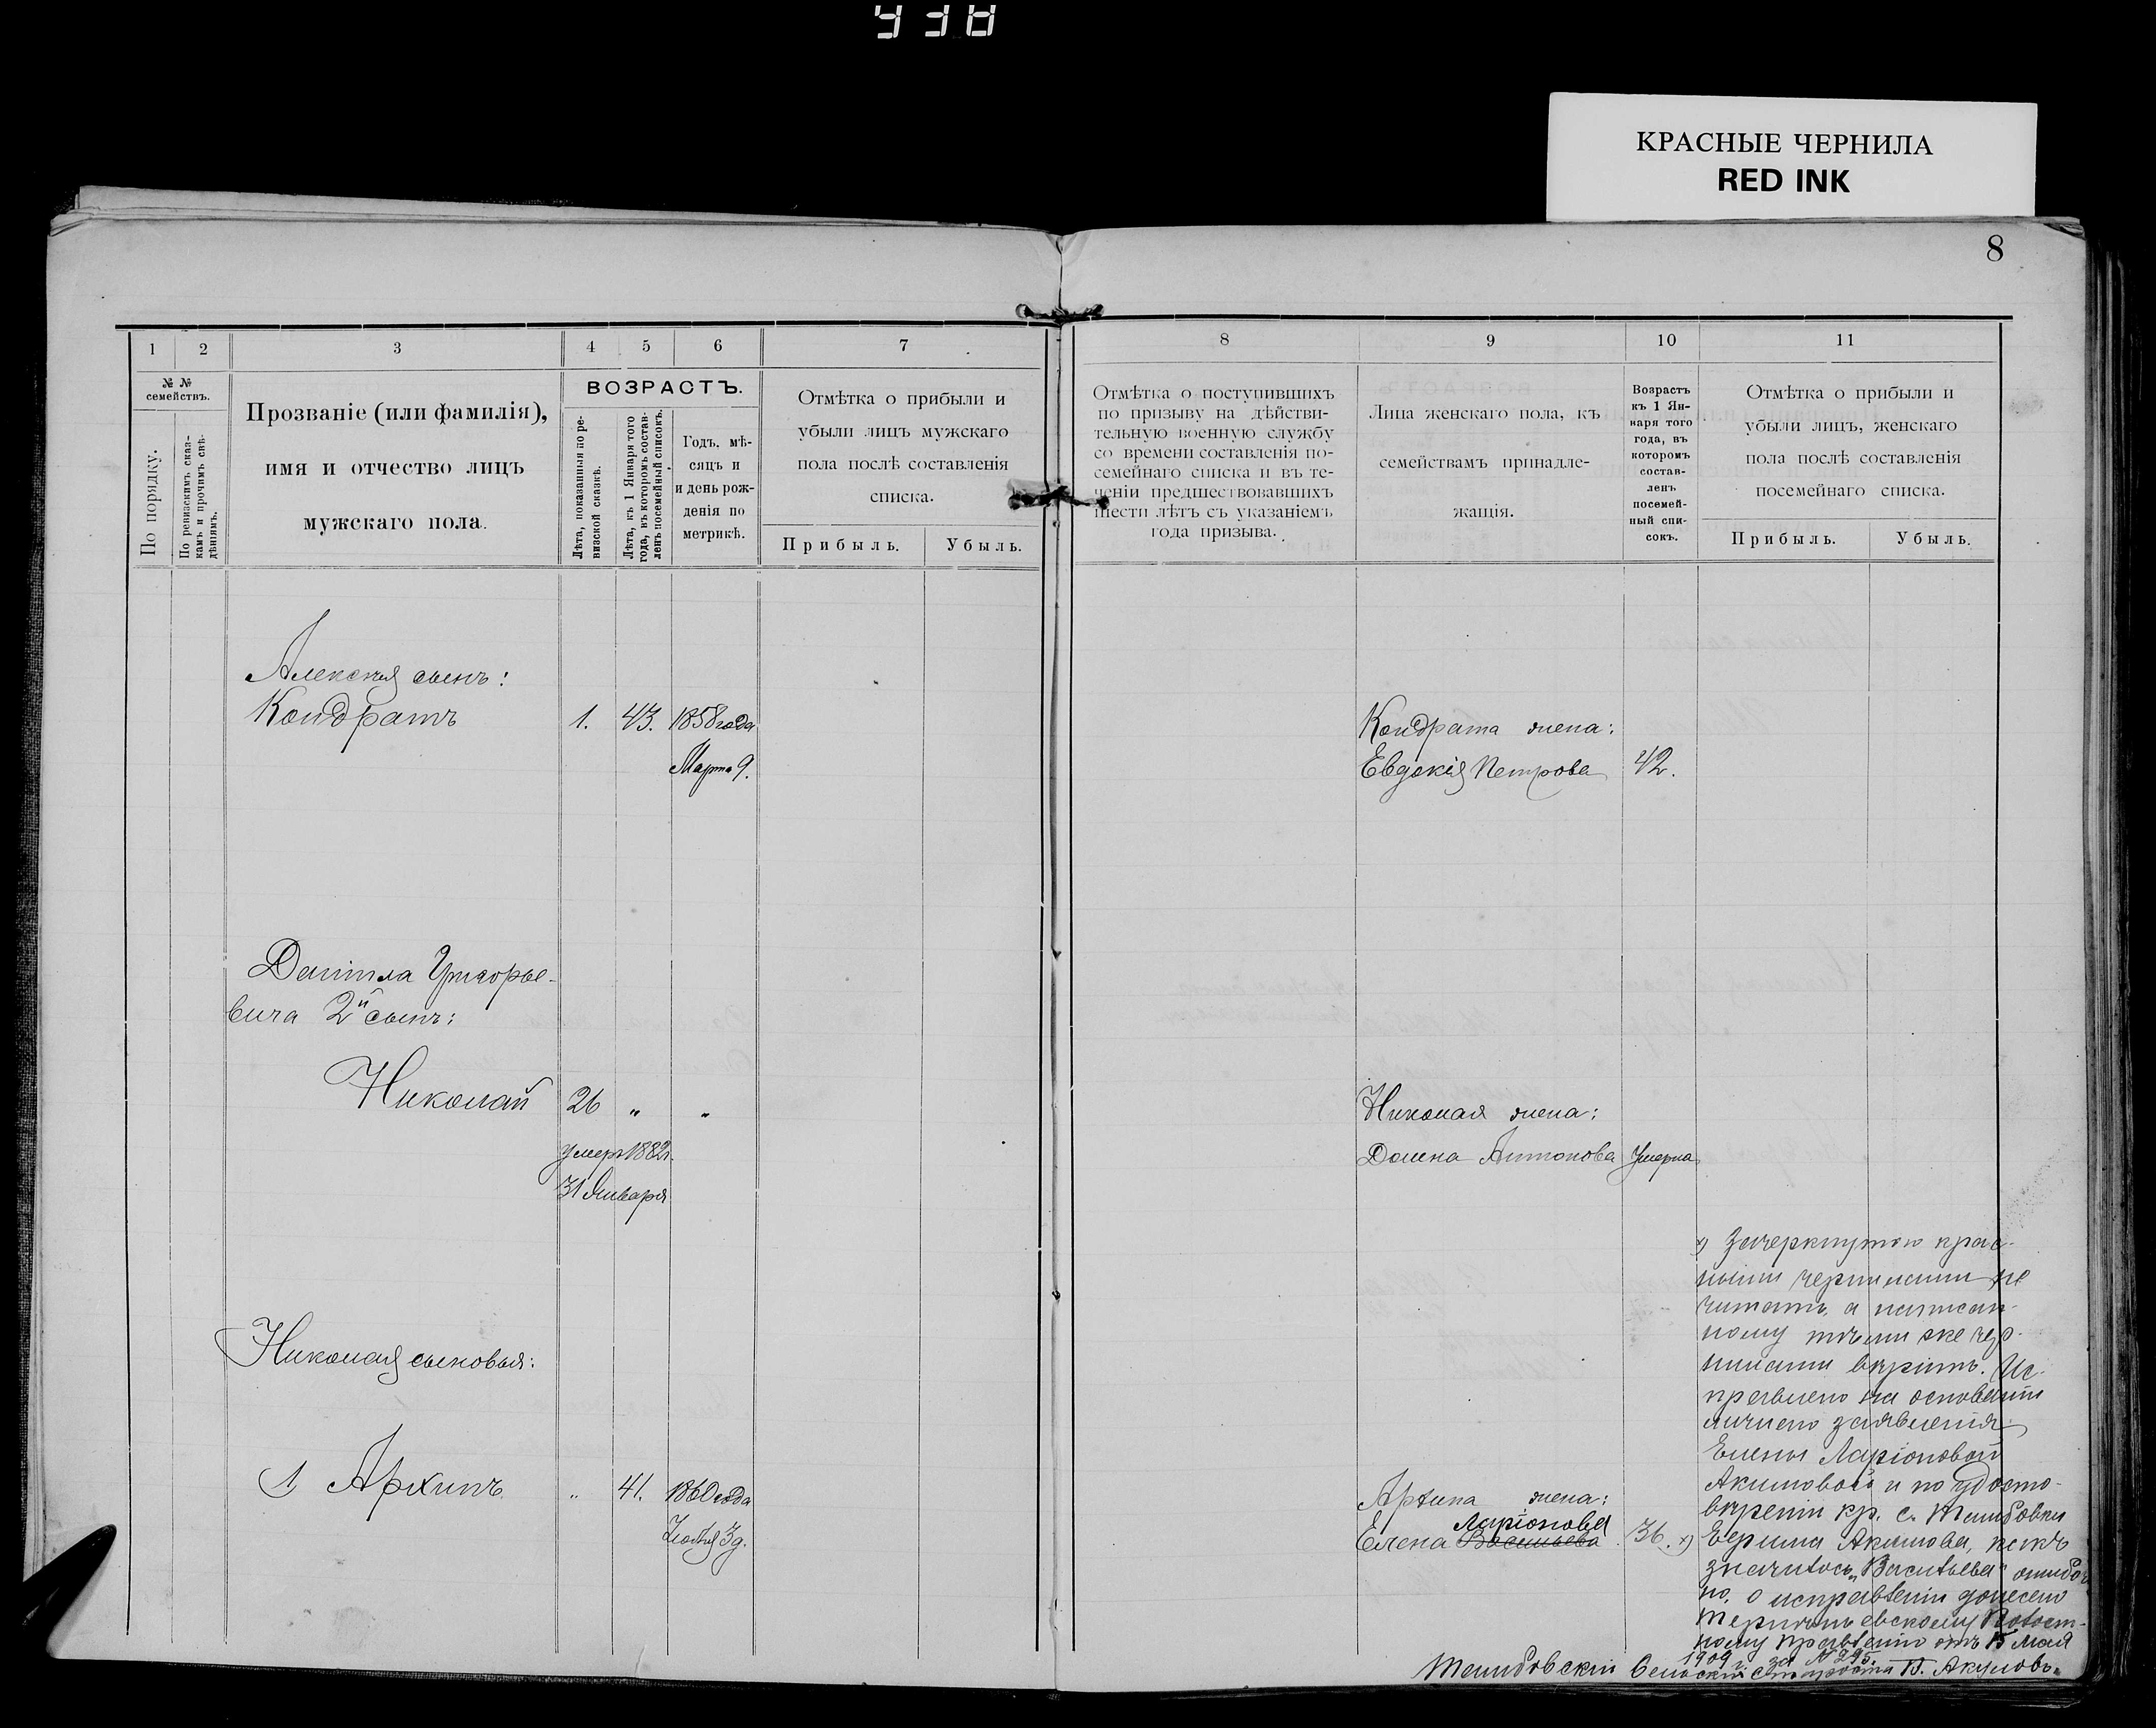 438
КРАСНЫЕ ЧЕРНИЛА
RED INK
8
1
2
3
4
5
6
7
№ №
семействъ.
По порядку.
По ревизскимъ сказ-
камъ и прочимъ свѣ-
дѣніямъ.
Прозваніе (или фамилія),
имя и отчество лицъ
мужскаго пола.
ВОЗРАСТЪ.
Лѣта, показанныя по ре-
визской сказкѣ.
Лѣта, къ 1 Января того
года, въ которомъ состав-
ленъ посемейный списокъ.
Годъ, мѣ-
сяцъ и
и день рож-
денія по
метрикѣ.
Отмѣтка о прибыли и
убыли лицъ мужскаго
пола послѣ составленія
списка.
Прибыль.
Убыль.
Алексѣя сынъ:
Кондратъ
1.
43.
1858 года
Марта 9.
Даніила Григорье-
вича 2й сынъ:
Николай
26
"
"
умеръ 1882 г.
31 Января
Николая сыновья:
1
Архипъ
"
41.
1860 года
3 д.
8
9
10
11
Отмѣтка о поступившихъ
по призыву на дѣйстви-
тельную военную службу
со времени составленія по-
семейнаго списка и въ те-
ченіи предшествовавшихъ
шести лѣтъ съ указаніемъ
года призыва.
Лица женскаго пола, къ
семействамъ принадле-
жащія.
Возрастъ
къ 1 Ян-
варя того
года, въ
которомъ
состав-
ленъ
посемей-
ный спи-
сокъ.
Отмѣтка о прибыли и
убыли лицъ, женскаго
пола послѣ составленія
посемейнаго списка.
Прибыль.
Убыль.
Кондрата жена:
Евдокія Петрова
42.
Николая жена:
Домна Антонова
Умерла
Архипа жена:
Ларіонова
Елена Васильева
36. х)
х) Зачеркнутою крас-
ными чернилами не
читать, а написан-
ному тѣми же чер-
нилами вѣрить. Ис-
правлено на основаніи
личнаго заявленія
Елены Ларіоновой
Акимовой и по удосто-
вѣренію кр. с.
Акимова,
значилось „Васильева" ошибоч
но. О исправленіи донесено
Волост-
ному Правленію отъ 15 Мая
1909 г. за № 295.
Сельскій Староста В. Акуловъ.